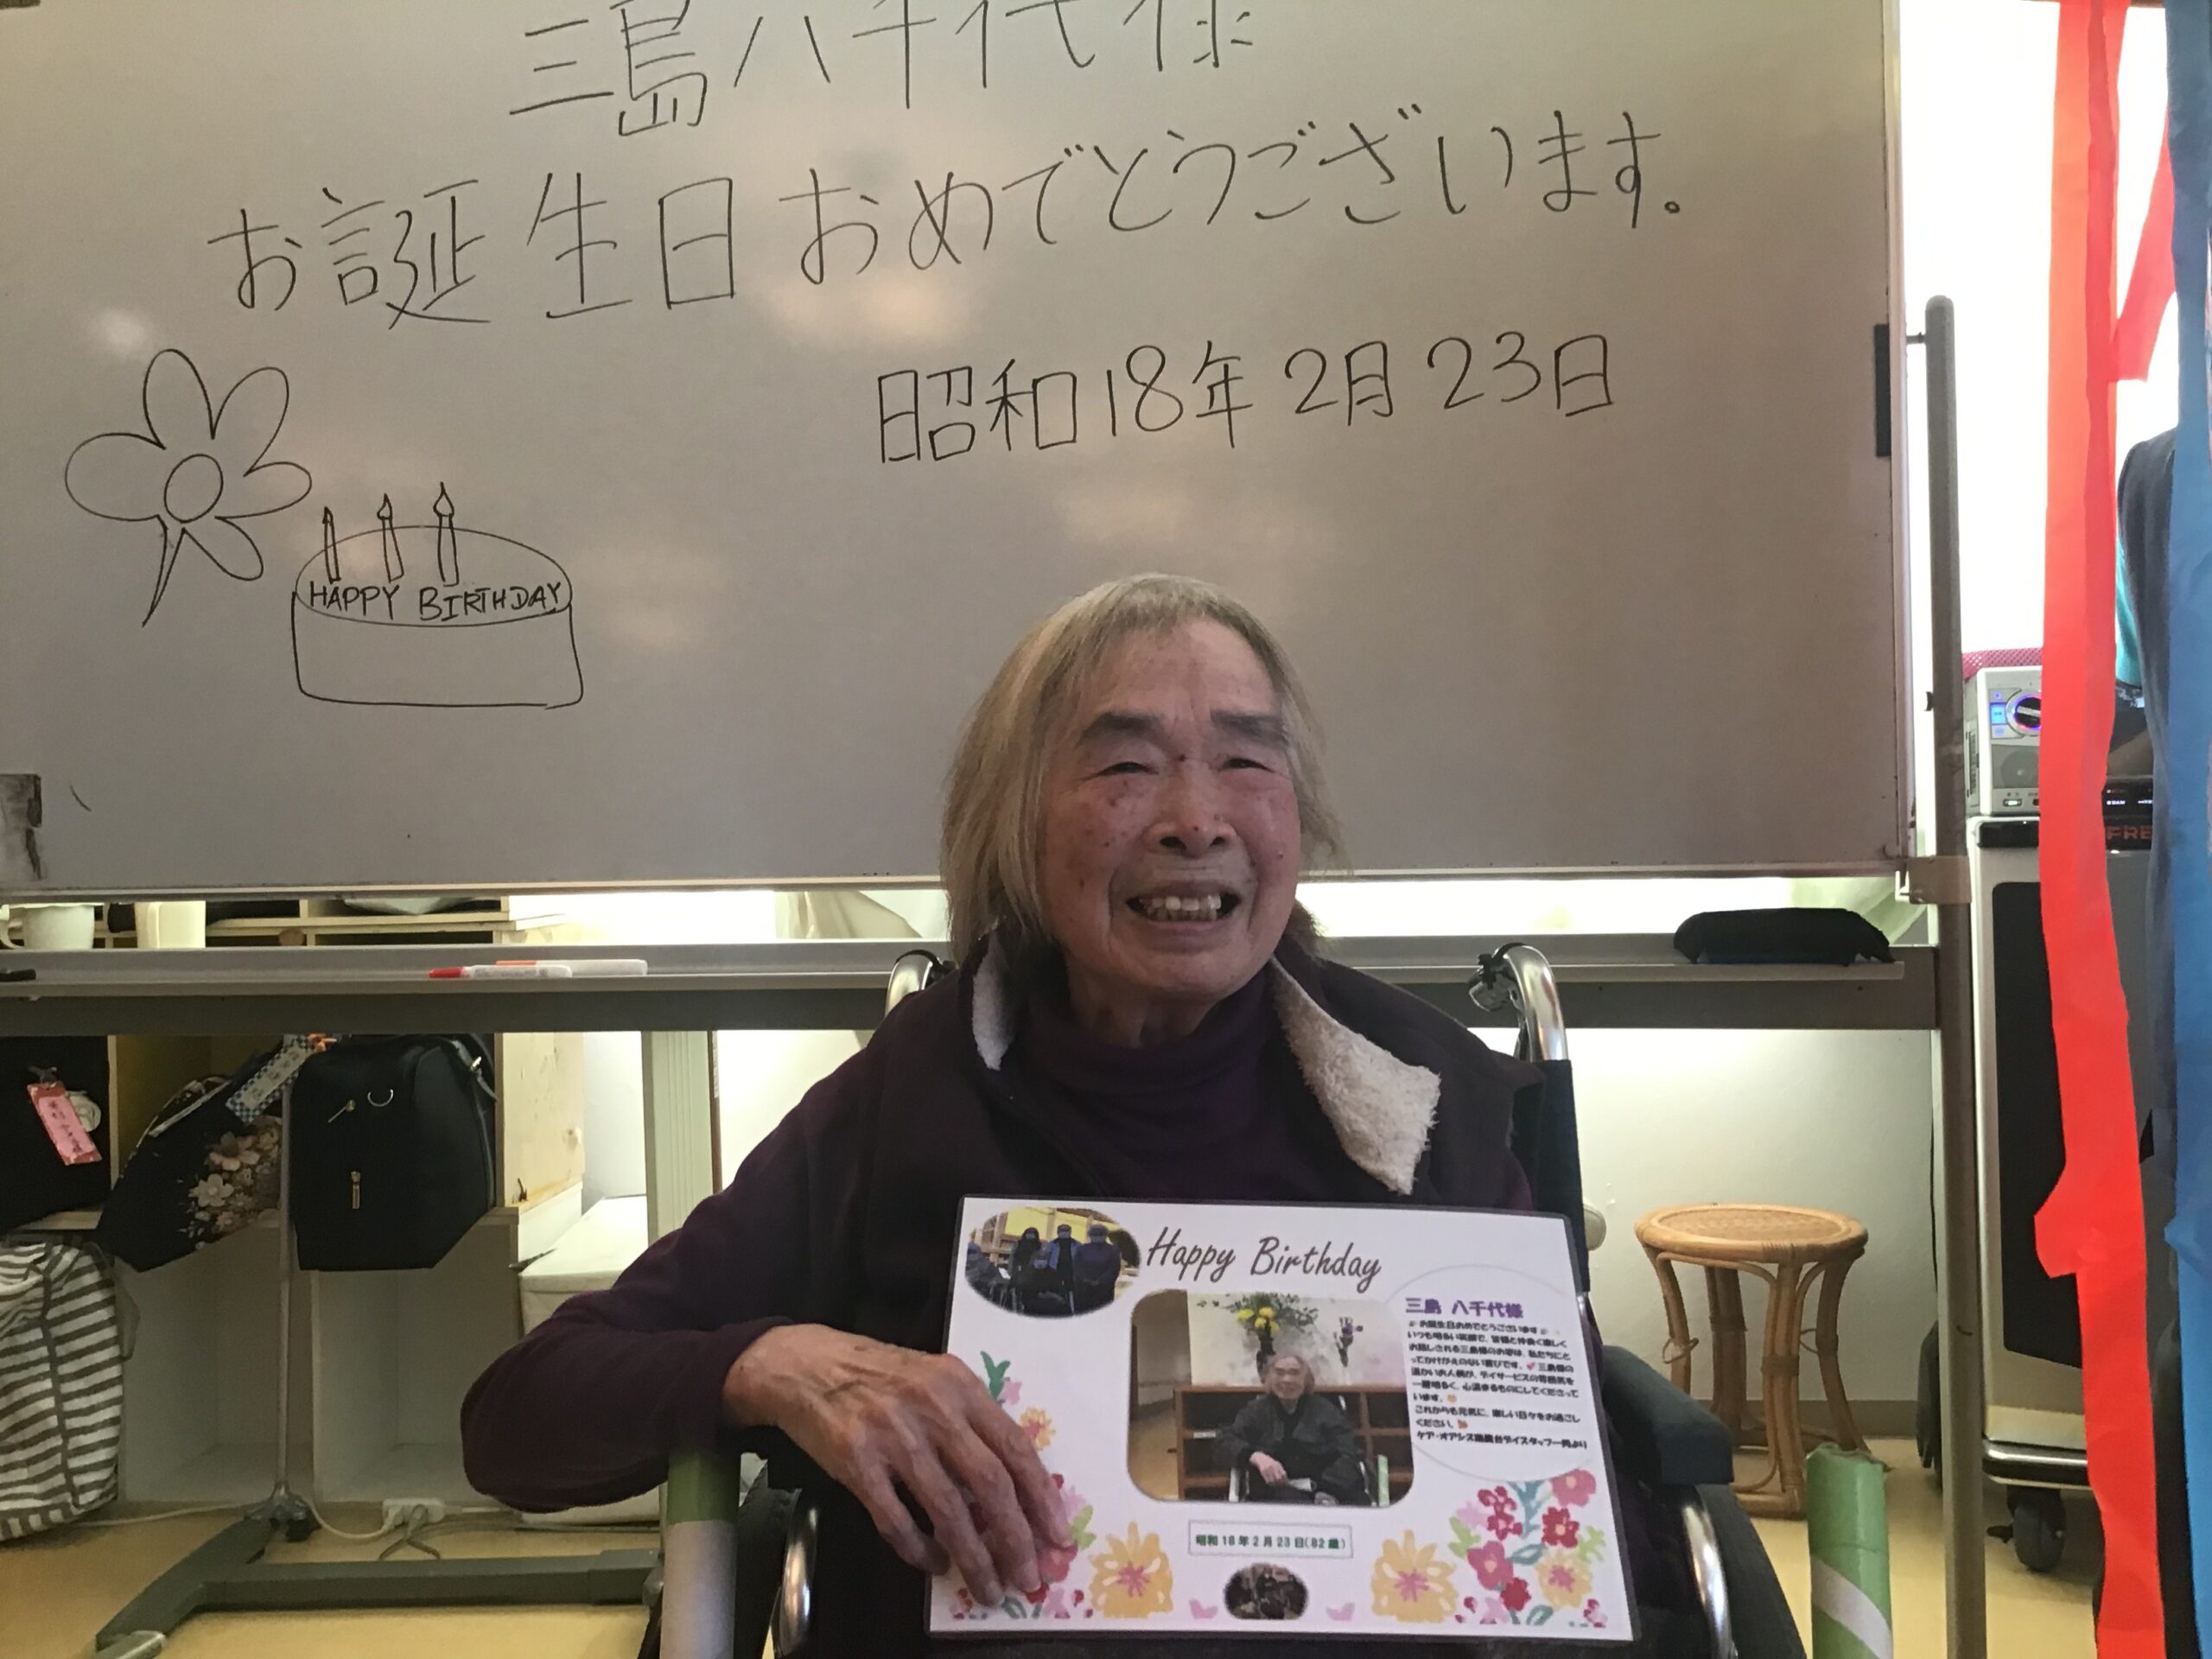 三島八千代様
お誕生日おめでとうございます。
昭和18年2月23日
HAPPY BIRTHDAY
Happy Birthday
三島 八千代様
お誕生日おめでとうございます
いつも明るい笑顔で、皆様と仲良く楽しく
お話しされる三島様のお姿は、私たちにと
ってかけがえのない喜びです。💕三島様の
温かいお人柄が、デイサービスの雰囲気を
一層明るく、心温まるものにしてくださって
います。
これからも元気に、楽しい日々をお過ごし
ください。
ケア・オアシス デイスタッフ一同より
昭和18年2月23日(82歳)